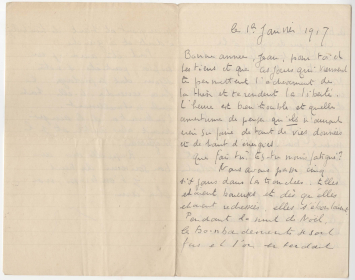 le 1er Janvier 1917
Bonne année, Jean, pour toi et
les tiens et que les jours qui viennent
te permettent l'achèvement de
ta thèse et te rendent la liberté.
L'heure est bien trouble et quelle
amertume de penser qu'ils n'auront
rien su faire de tant de vies données
et de tant d'energies.
Que fais-tu? Es-tu moins fatigué?
Nous avons passé cinq
six jours dans les tranchées. Elles
étaient boueuses et dès qu'elles
étaient redressées, elles s'éboulaient.
Pendant la nuit de Noël,
les Boches devant se sont
tus et l'on entendait